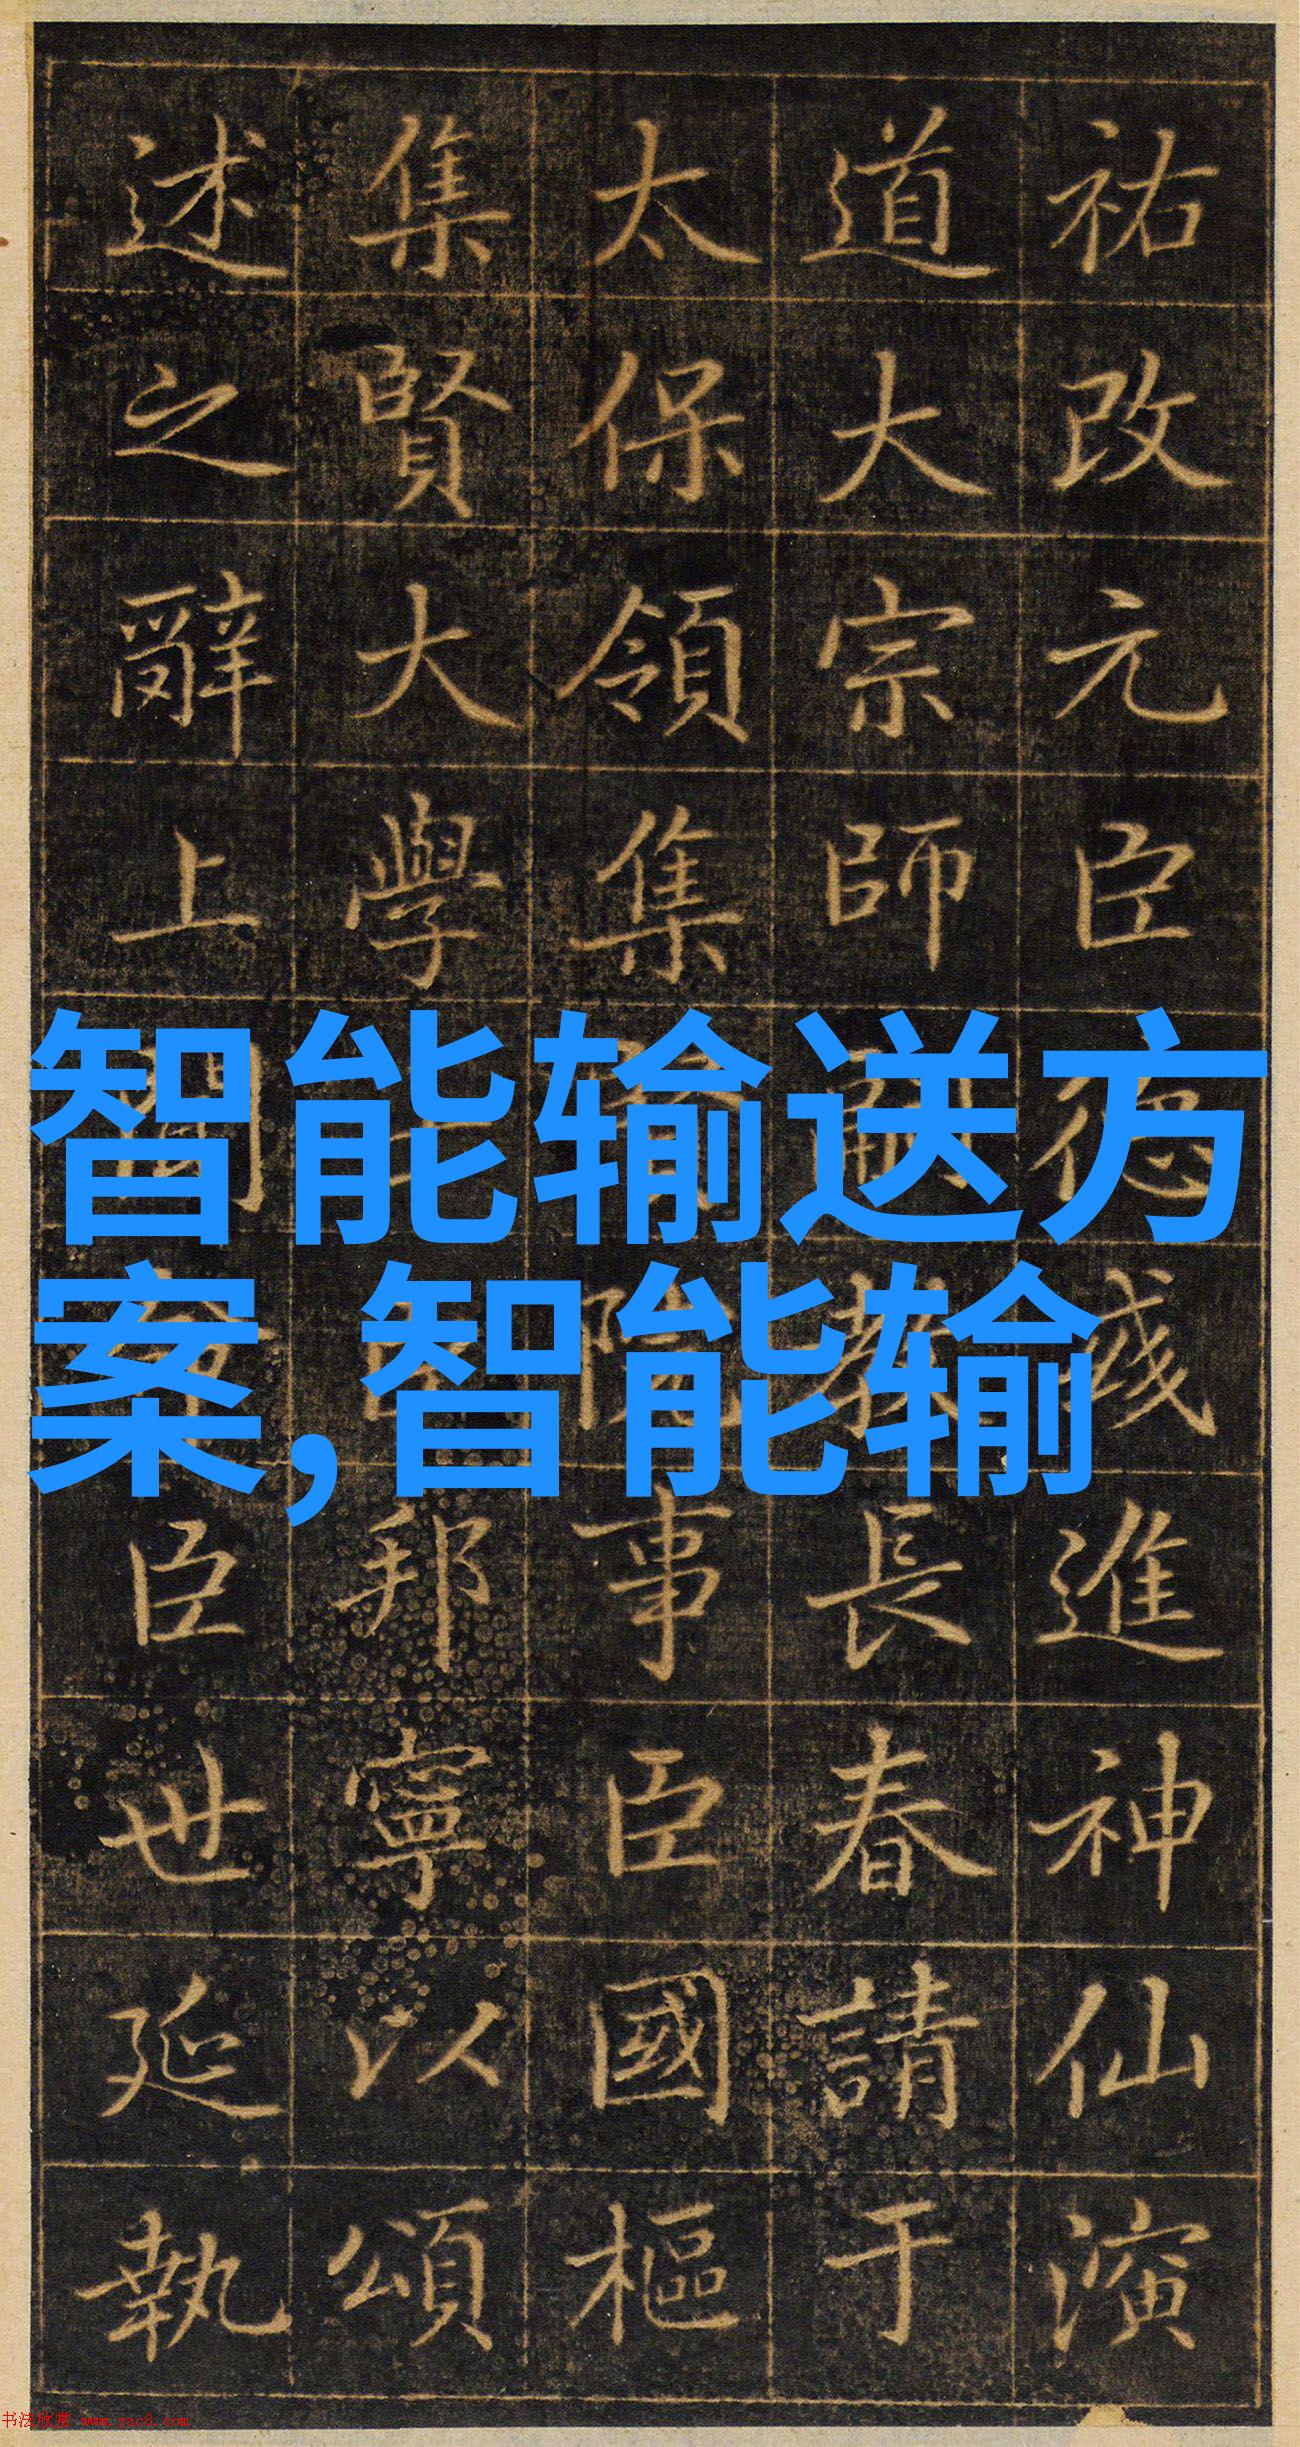 祐改元臣德彧進神仙演
道大宗師嗣教長春請于
太保領集賢院事臣國樞
集賢大學士臣邦寧以頌
述之辭上聞臣世延執
智能输送方
案,智能输
书法欣赏 www.yac8.com